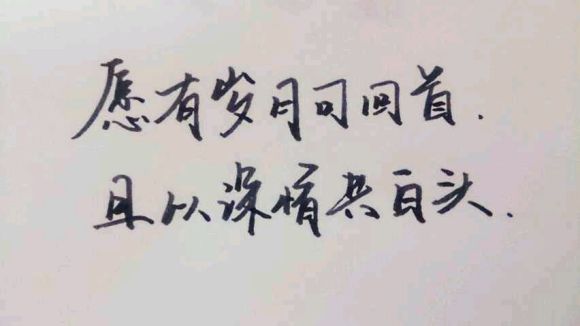 愿有岁月可回首.
且以深情共白头.